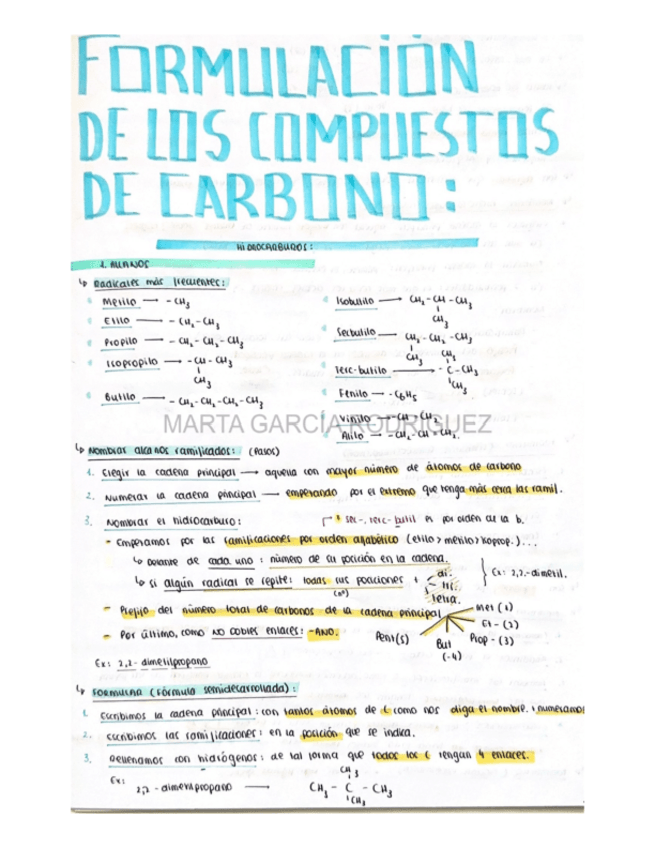 FORMULACIÓN
DE LOS COMPUESTOS
DE CARBONO:
HIDROCARBUROS:
1. ALCANOS
↳ Radicales más frecuentes:
Metilo → - CH3
Etilo → - CH2-CH3
Propilo → - CH2-CH2-CH3
Isopropilo → - CH-CH3
CH3
Butilo → - CH2-CH2-CH2-CH3
Isobutilo → CH2-CH-CH3
CH3
Secbutilo → CH2-CH2-CH3
CH3
Terc-butilo → CH3
- C-CH3
CH3
Fenilo → - C6H5
Vinilo → -CH=CH2
Alilo → -CH2-CH=CH2.
MARTA GARCÍA RODRIGUEZ
↳ Nombrar alcanos ramificados: (Pasos)
1. Elegir la cadena principal → aquella con mayor número de átomos de carbono
2. Numerar la cadena principal → empezando por el extremo que tenga más cerca las ramif.
3. Nombrar el hidrocarburo:
* sec-, terc- butil es por orden de la b.
- Empezamos por las ramificaciones por orden alfabético (etilo > metilo > isoprop.)...
↳ Delante de cada uno : número de su posición en la cadena.
↳ si algún radical se repite: todas sus posiciones +
(nº)
di.
tri.
tetra.
Ex: 2,2-dimetil.
- Prefijo del número total de carbonos de la cadena principal
Met (1)
Et - (2)
Prop - (3)
But
(-4)
Pent(5)
- Por último, como NO DOBLES ENLACES: -ANO.
Ex: 2,2- dimetilpropano
↳ FORMULNA (Fórmula semidesarrollada) :
1. Escribimos la cadena principal: con tantos átomos de C como nos diga el nombre. + numeramos
2. Escribimos las ramificaciones: en la posición que se indica.
3. Rellenamos con hidrógenos: de tal forma que todos los C tengan 4 enlaces.
Ex:
2,2 - dimetilpropano →
CH3
CH3 - C - CH3
CH3